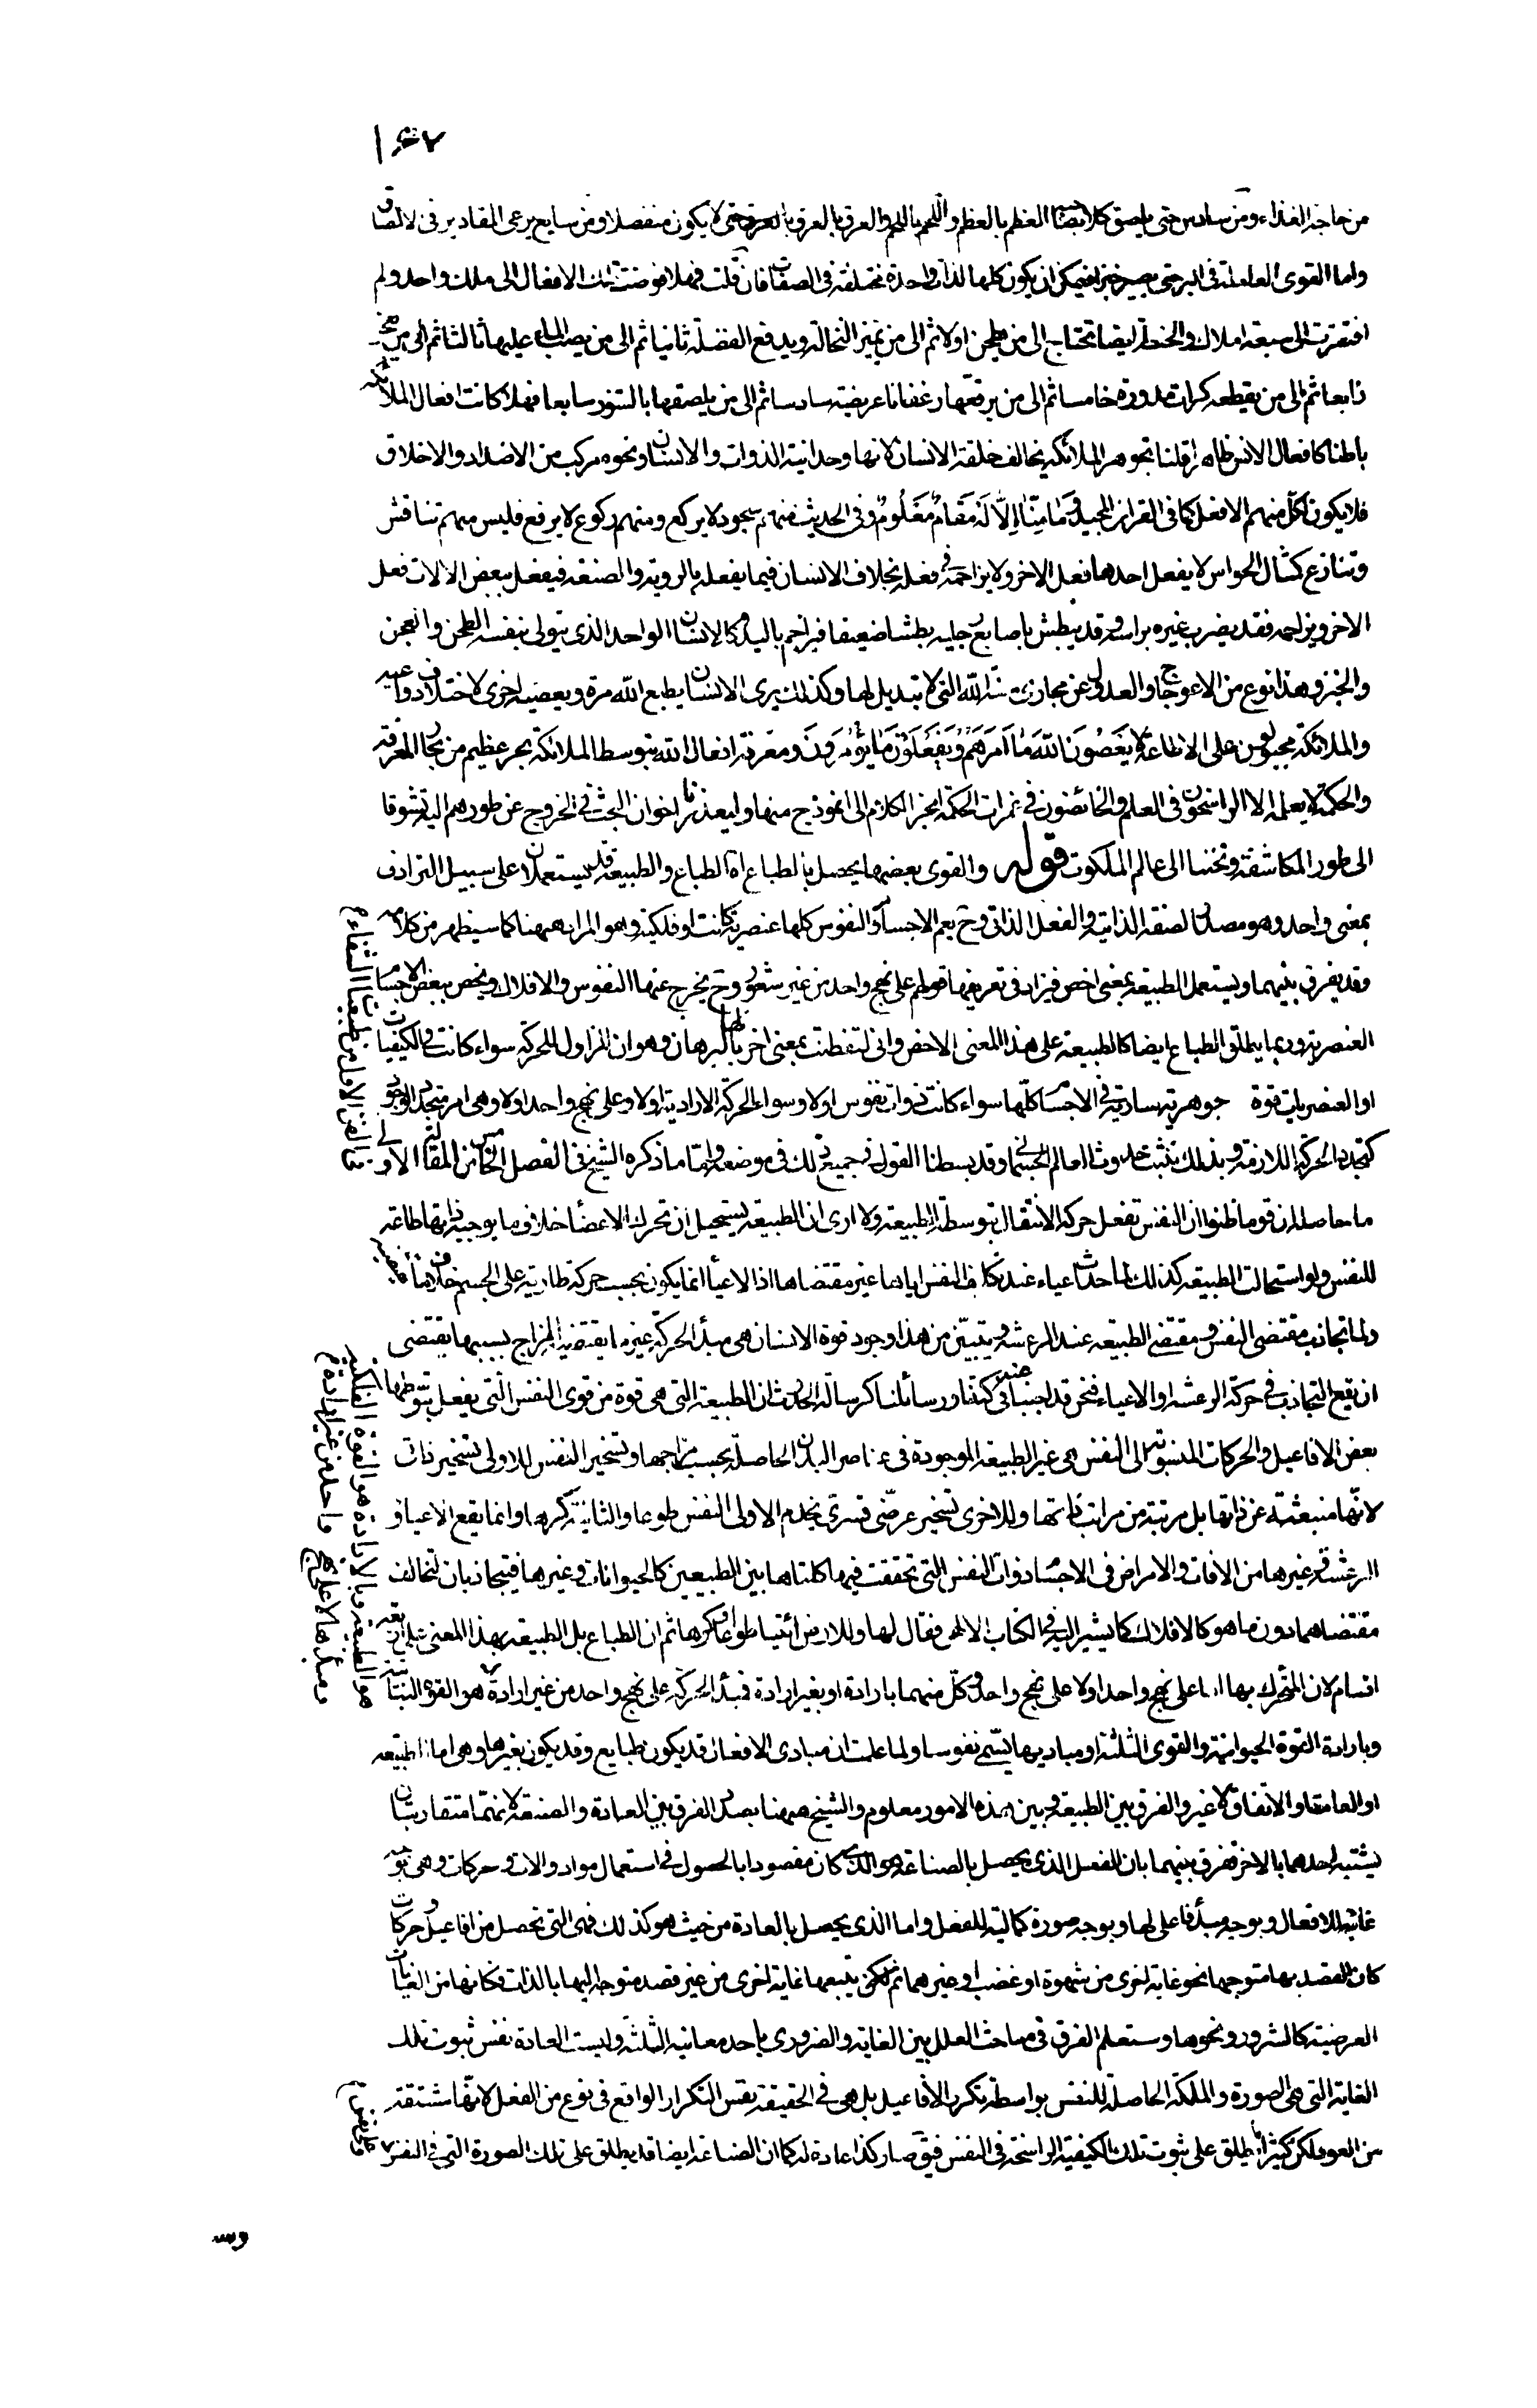 ١٦٧
من حاجة الغذاء ومن سادس حتى يلصق كلا بصاحبه العظم بالعظم واللحم باللحم والعرق بالعرق حتى لا يكون منفصلا ومن سابع يرعى المقادير في الالصاق
واما القوى العاملة في البر حتى يصير خبزا فيمكن ان يكون كلها لذات واحدة مختلفة في الصفات فان قلت فهلا فوضت تلك الافعال الى ملك واحد ولم
افتقرت الى سبعة املاك والحنطة ايضا تحتاج الى من يطحن اولا ثم الى من يميز النخالة ويدفع الفضلة ثانيا ثم الى من يصب الماء عليها ثالثا ثم الى من يعجن
رابعا ثم الى من يقطعه كرات مدورة خامسا ثم الى من يرققها رغفانا عريضة سادسا ثم الى من يلصقها بالتنور سابعا فهلا كانت افعال الملائكة
باطنا كافعال الانس ظاهرا قلنا نحو هر الملائكة يخالف خلقة الانسان لانها وحدانية الذوات والانسان ونحوه مركب من الاضداد والاخلاق
فلا يكون لكل منهم الا فعل كما في القران المجيد وَمَا مِنَّا اِلَّا لَهُ مَقَامٌ مَعْلُومٌ وفي الحديث منهم سجود لا يركع ومنهم ركوع لا يرفع فليس منهم تناقش
وتنازع كمثال الحواس لا يفعل احدها فعل الاخر ولا يزاحمه في فعله بخلاف الانسان فيما يفعله بالروية والصنعة فيفعل ببعض الالات فعل
الاخر ويزاحمه فقد يضرب غيره براسه وقد يبطش باصابع رجليه بطشا ضعيفا فيزاحم باليد وكالانسان الواحد الذى يتولى بنفسه الطحن والعجن
والخبز وهذا نوع من الاعوجاج والعدول عن مجارى سنة الله التى لا تبديل لها وكذلك يرى الانسان يطيع الله مرة ويعصيه اخرى لاختلاف دواعيه
والملائكة مجبولون على الاطاعة لَا يَعْصُونَ اللَّهَ مَا اَمَرَهُمْ وَيَفْعَلُونَ مَا يُؤْمَرُونَ ومعرفة افعال الله بتوسط الملائكة بحر عظيم من بحار المعرفة
والحكمة لا يعلمه الا الراسخون في العلم والخائضون في غمرات الحكمة انجر الكلام الى انموذج منها وليعذرنا اخوان البحث في الخروج عن طورهم اليه تشوقا
الى طور المكاشفة وتحننا الى عالم الملكوت قوله والقوى بعضها يحصل بالطباع اه الطباع والطبيعة قد يستعملان على سبيل الترادف
بمعنى واحد وهو مصدر الصفة الذاتية والفعل الذاتى وح يعم الاجسام والنفوس كلها عنصرية كانت او فلكية وهو المراد ههنا كما سيظهر من كلامه
وقد يفرق بينهما ويستعمل الطبيعة بمعنى اخص فيزاد في تعريفها قولهم على نهج واحد من غير شعور وح يخرج عنها النفوس والافلاك ويخص ببعض الاجسام
العنصرية وربما يطلق الطباع ايضا كالطبيعة على هذا المعنى الاخص وانى لتفطنت بمعنى اخر لها بالبرهان وهو ان المزاول للحركة سواء كانت في الكيفيات
او العنصريات قوة جوهرية سارية في الاجسام كلها سواء كانت ذوات نفوس اولا وسواء الحركة الارادية اولا وعلى نهج واحد اولا وهى امر متجدد الوجود
كتجدد الحركة اللازمة وبذلك يثبت حدوث العالم الجسمانى وقد بسطنا القول في جميع ذلك في موضعه واما ما ذكره الشيخ في الفصل الخامس من المقالة الاولى
من الفن الاول من طبيعيات الشفاء م
ما حاصله ان قوما ظنوا ان النفس تفعل حركة الانتقال بتوسط الطبيعة ولا ارى ان الطبيعة يستحيل ان تحرك الاعضاء خلاف ما يوجبه ذاتها طاعة
للنفس ولو استحالت الطبيعة كذلك لما حدث اعياء عند تكليف النفس اياها غير مقتضاها اذ الاعياء انما يكون بحسب حركة طارية على الجسم خلاف ما يقتضيه
ولما تجاذب مقتضى النفس ومقتضى الطبيعة عند الرعشة ويتبين من هذا وجود قوة الانسان هى مبدأ الحركة غير ما يقتضيه المزاج بسببها يقتضى
ان يقع التجاذب في حركة الرعشة او الاعياء فنحن قد اجبنا عنه في كتبنا ورسائلنا كرسالة الحدوث ان الطبيعة التى هى قوة من قوى النفس التى يفعل بتوسطها
بعض الافاعيل والحركات المنسوبة الى النفس هى غير الطبيعة الموجودة في عناصر البدن الحاصلة بحسب مزاجها وتسخير النفس للاولى تسخير ذات
لانها منبعثة عن ذاتها بل مرتبة من مراتب ذاتها وللاخرى تسخير عرضى قسرى يخدم الاولى النفس طوعا والثانية كرها وانما يقع الاعياء او
الرعشة وغيرها من الافات والامراض في الاجساد ذوات النفس التى تحققت فيها كلتاهما بين الطبيعتين كالحيوانات وغيرها فيتجاذبان لتخالف
مقتضاهما دون ما هو كالافلاك كما يشير اليه في الكتاب الالهى فقال لها وللارض ائتيا طوعا او كرها ثم ان الطباع بل الطبيعة بهذا المعنى على اربعة
اقسام لان المتحرك بها اما على نهج واحد اولا على نهج واحد وكل منهما بارادة او بغير ارادة فمبدأ الحركة على نهج واحد من غير ارادة هو القوة النباتية
هو الطبيعة وبالارادة هو القوة الفلكية
ومبدأها لا على نهج واحد من غير ارادة م
وبارادة القوة الحيوانية والقوى الثلثة او مباديها يسمى نفوسا ولما علمت ان مبادى الافعال قد يكون طبايع وقد يكون بغيرها وهى اما الطبيعة
او العادة او الاتفاق لا غير والفرق بين الطبيعة وبين هذه الامور معلوم والشيخ ههنا بصدد الفرق بين العادة والصنعة لانهما متقاربتان
يشتبه احدهما بالاخر ففرق بينهما بان الفعل الذى يحصل بالصناعة هو الذى كان مقصودا بالحصول في استعمال مواد والات وحركات وهى بوجه
غائية للافعال وبوجه مبدأ فاعلى لها وبوجه صورة كمالية للفعل واما الذى يحصل بالعادة من حيث هو كذلك فهى التى تحصل من افاعيل وحركات
كان القصد بها متوجها نحو غاية اخرى من شهوة او غضب او غيرهما ثم لكن يتبعها غاية اخرى من غير قصد متوجه اليها بالذات فكانها من الغايات
العرضية كالشرور ونحوها وستعلم الفرق في مباحث العلل بين الغاية والضرورى باحد معانيه الثلثة وليست العادة نفس ثبوت تلك
الغاية التى هى الصورة والملكة الحاصلة للنفس بواسطة تكرر الافاعيل بل هى في الحقيقة نفس التكرار الواقع في نوع من الفعل لانها مشتقة
من العود لكن كثيرا ما يطلق على ثبوت تلك الكيفية الراسخة في النفس فيق صار كذا عادة له كما ان الصناعة ايضا قد يطلق على تلك الصورة التى في النفس